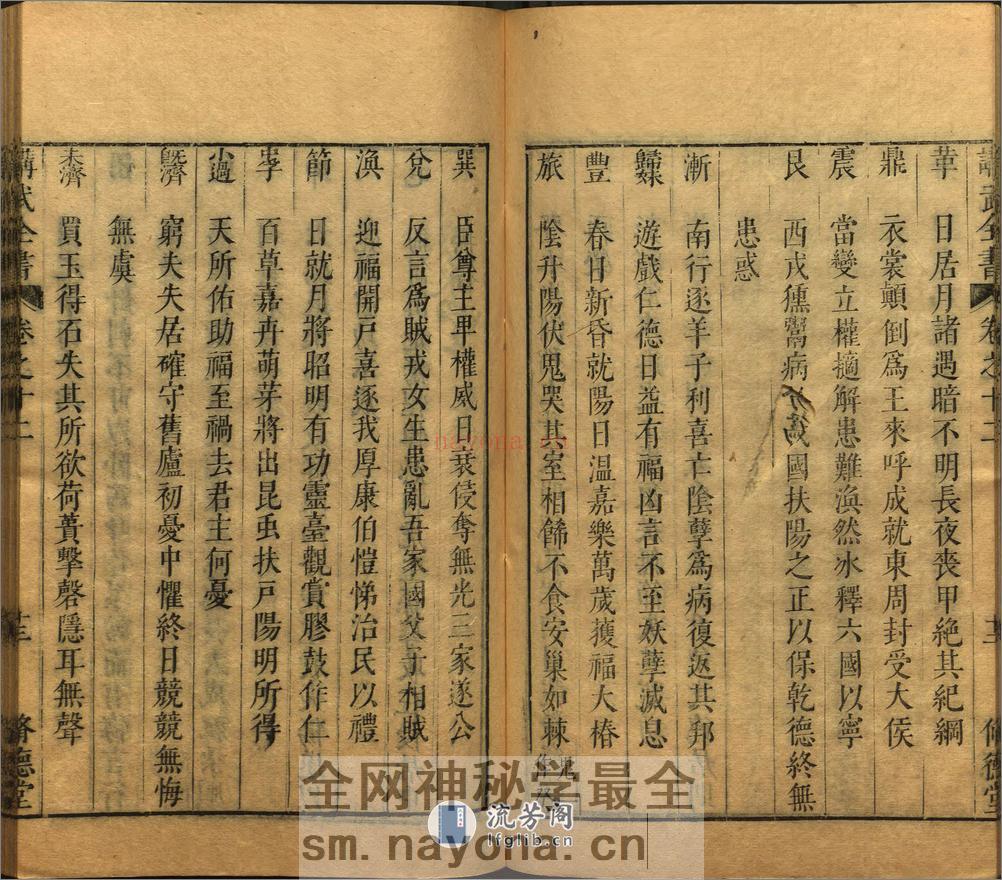 講武全書 卷之十二 十二 脩德堂
革 日居月諸遇暗不明長夜喪甲絶其紀綱
鼎 衣裳顛倒爲王來呼成就東周封受大侯
震 當變立權擿解患難渙然冰釋六國以寧
艮 西戎獯鬻病於爲國扶陽之正以保乾德終無
患惑
漸 南行逐羊子利喜亡陰孽爲病復返其邦
歸妹 遊戲仁德日益有福凶言不至妖孽滅息
豐 春日新昏就陽日温嘉樂萬歲獲福大椿
旅 陰升陽伏鬼哭其室相餙不食安巢如棘
巽 臣尊主卑權威日衰侵奪無光三家遂公
兌 反言爲賊戎女生患亂吾家國父子相賊
渙 迎福開戸喜逐我厚康伯愷悌治民以禮
節 日就月將昭明有功靈臺觀賞膠鼓作仁
孚 百草嘉卉萌芽將出昆虫扶戸陽明所得
小過 天所佑助福至禍去君主何憂
旣濟 窮夫失居確守舊廬初憂中懼終日競競無悔
無虞
未濟 買玉得石失其所欲荷蕢擊磬隱耳無聲
講武全書 卷之十二 十三 脩德堂
nayona.cn
全网神秘学最全
流芳阁
lfglib.com
sm.nayona.cn